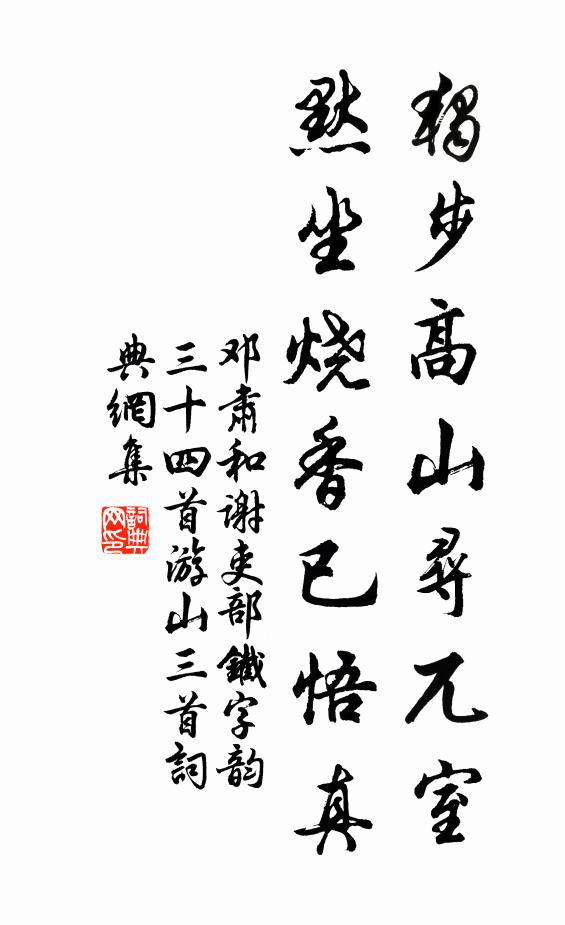 獨步高山尋兀室
默坐烧香已悟真
邓肅和谢吏部鐵字韵
三十四首游山三首詞
典網集
詞典网印